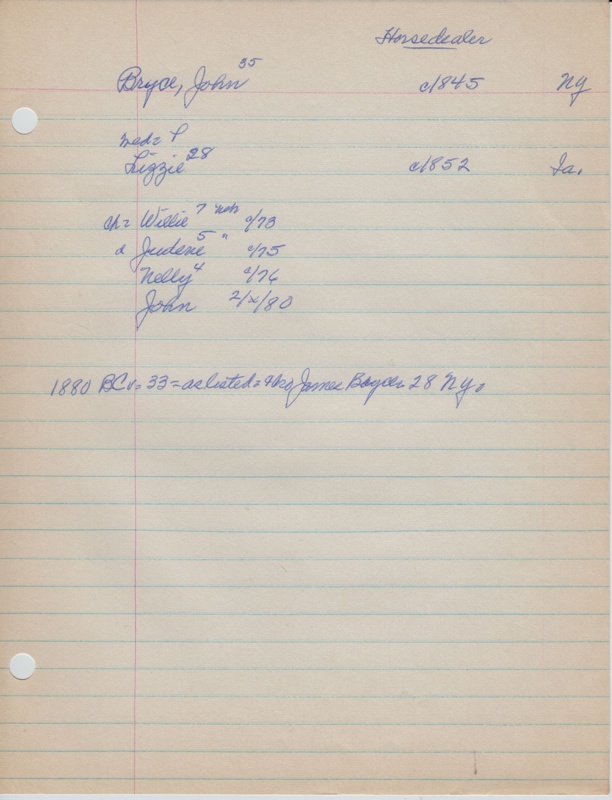 Horsedealer
Bryce, John 35 c/1845 Ny
Lizzie 28 c/1852 Ia.
ch = Willie 7 c/73
Judene 5 " c/75
Nelly 4 c/76
John 2/x/80
1880 BCo = 33 = as listed = James 28 Ny.